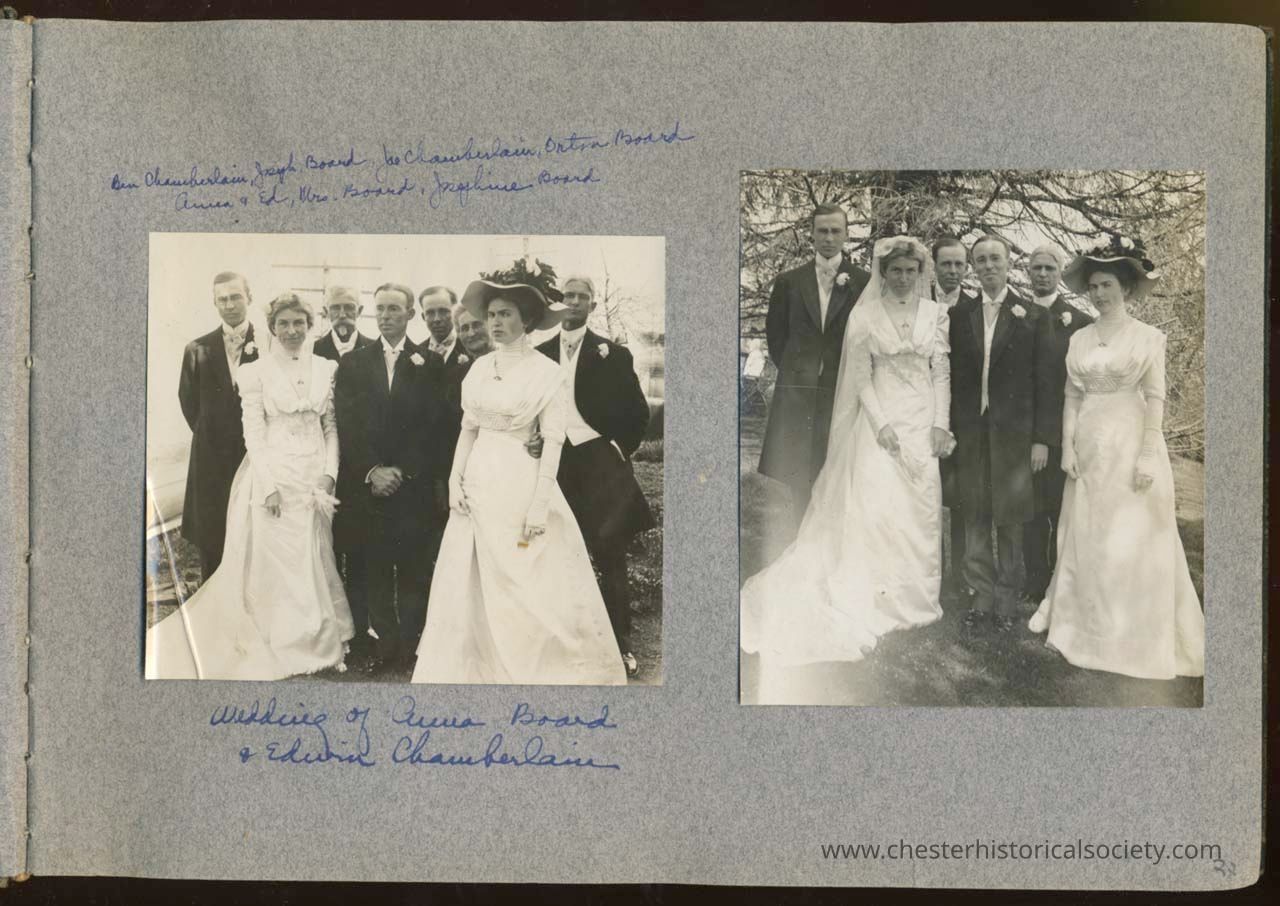 Ben Chamberlain, Joseph Board, Joe Chamberlain, Orton Board
Anna & Ed, Mrs. Board, Josephine Board
Wedding of Anna Board
& Edwin Chamberlain
www.chesterhistoricalsociety.com